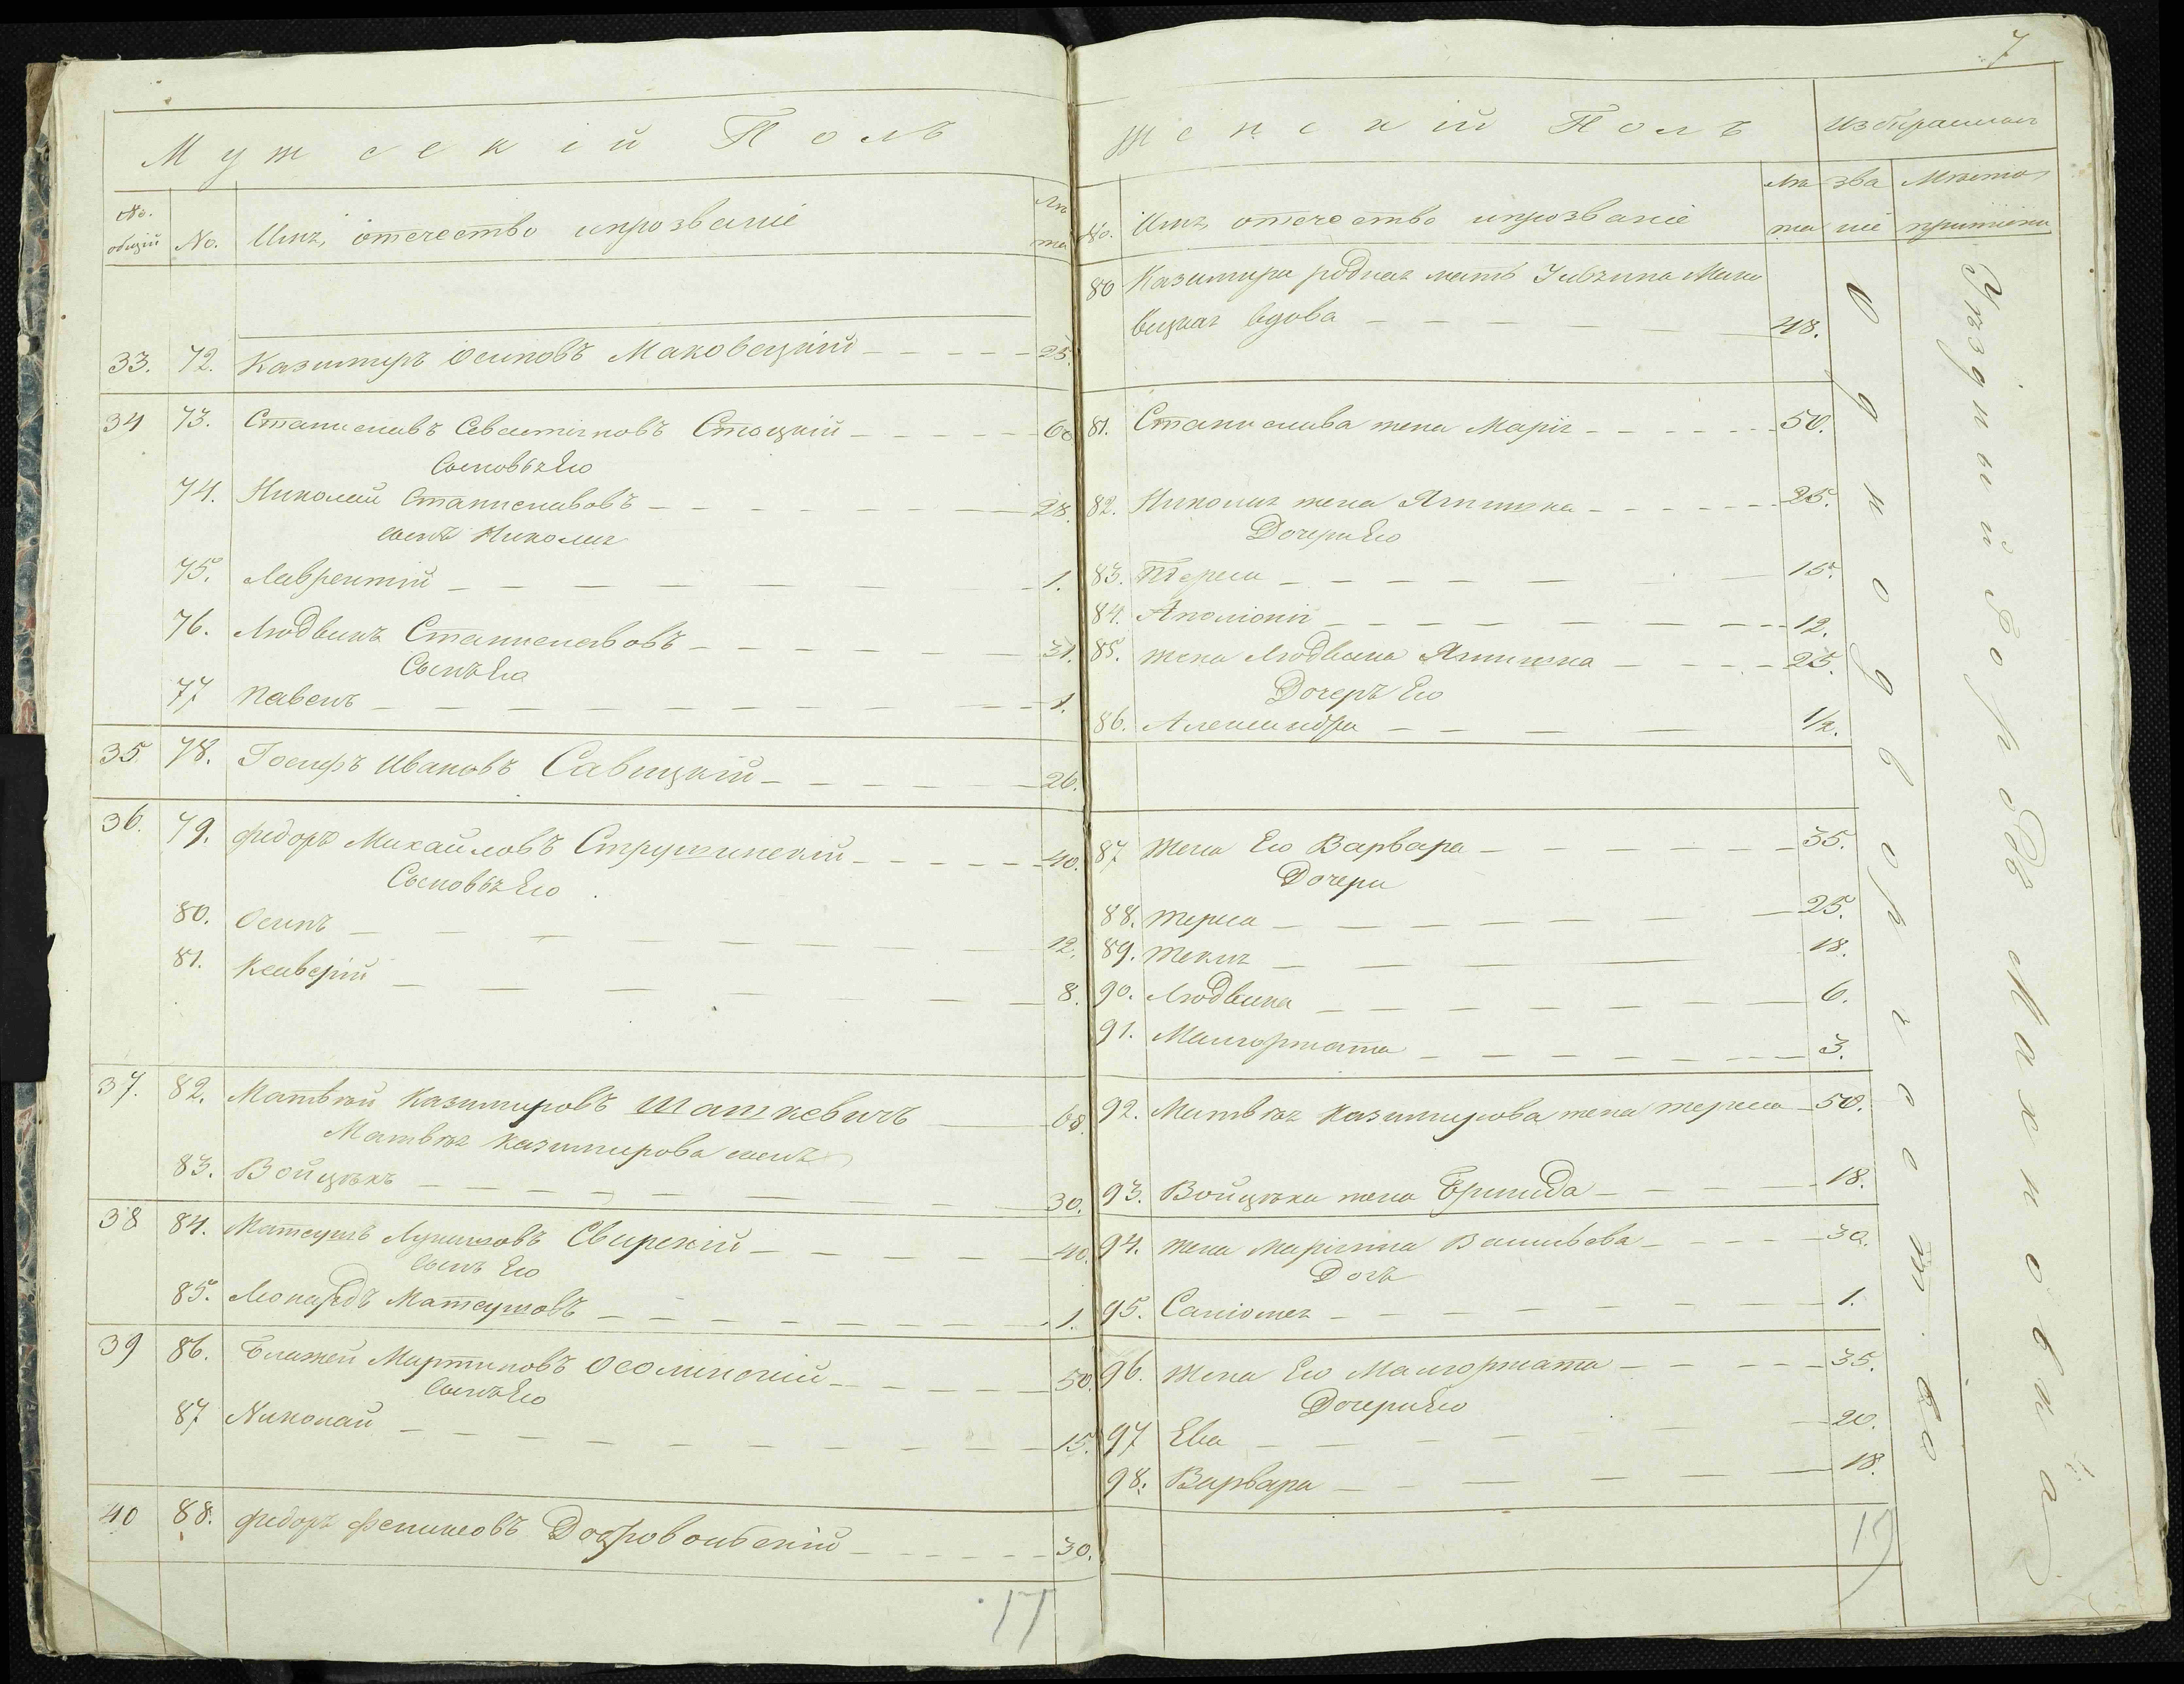 Мужескій Полъ
№. общій
№.
Имя, отечество и прозваніе
Лѣ та
33. 72. Казимиръ Осиповъ Маковецкій 25.
34 73. Станиславъ Севастіяновъ Стоцкій 60
Сыновья Его
74. Николай Станиславовъ 28.
сынъ Николая
75. Лаврентій 1.
76. Людвикъ Станиславовъ 31.
Сынъ Его
77 Павелъ 1.
35 78. Іосифъ Ивановъ Савицкій 26.
36. 79. Федоръ Михайловъ Стружинскій 40.
Сыновья Его
80. Осипъ 12.
81. Ксаверій 8.
37. 82. Матвѣй Казимировъ Шашкевичъ 68
Матвѣя Казимирова сынъ
83. Войцѣхъ 30.
38 84. Матеушъ Лукашовъ Свирскій 40.
Сынъ Его
85. Леонардъ Матеушовъ 1.
39 86. Блажей Мартиновъ Осолинскій 50.
Сынъ Его
87 Николай 15.
40 88. Федоръ Добровольскій 30.
17
7
Женскій Полъ
№.
Имя, отечество и прозваніе
Лѣ та
зва ніе
Мѣсто
80 Казимира родная мать Мако
вецкая вдова 48.
81. Станислава жена Марія 50.
82. Николая жена Ягнишка 25.
Дочери Его
83. Тереса 15.
84. Аполіонія 12.
85. жена Людвика Ягнишка 25.
Дочеръ Его
86. Александра 1/2.
87 Жена Его Варвара 35.
Дочери
88. Тереса 25.
89. Текля 18.
90. Людвика 6.
91. Малгоржата 3.
92. Матвѣя Казимирова жена Тереса 50.
93. Войцѣха жена Бригида 18.
94. жена Маріянна Васильева 30.
Дочь
95. Саломея 1.
96. Жена Его Малгоржата 35.
Дочери Его
97 Ева 20.
98. Варвара 18.
19
Однодворческое
Уѣздный городъ Махновка